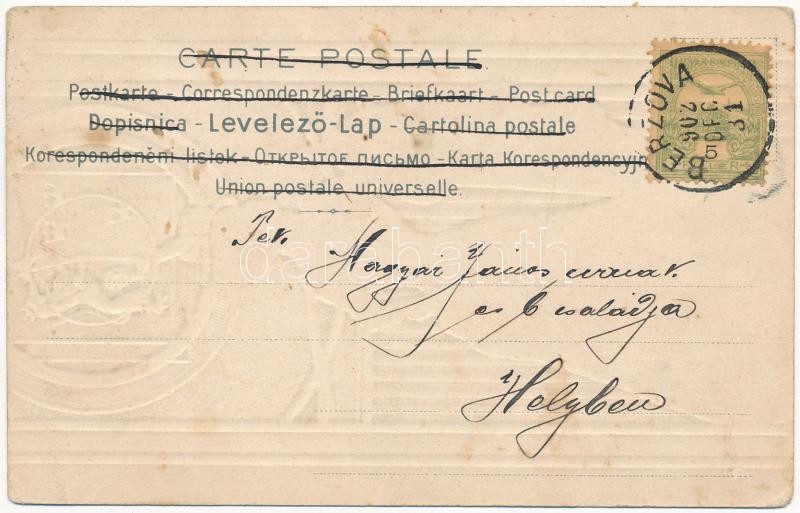 CARTE POSTALE
Postkarte - Correspondenzkarte - Briefkaart - Post card
Dopisnica - Levelező-Lap - Cartolina postale
Korespondenční lístek - Открытое письмо - Karta Korespondencyjn
Union postale universelle.
BERZOVA
902 DEC 31
5
Tek.
Magyar János urnak
és b családja
Helyben
darabanth